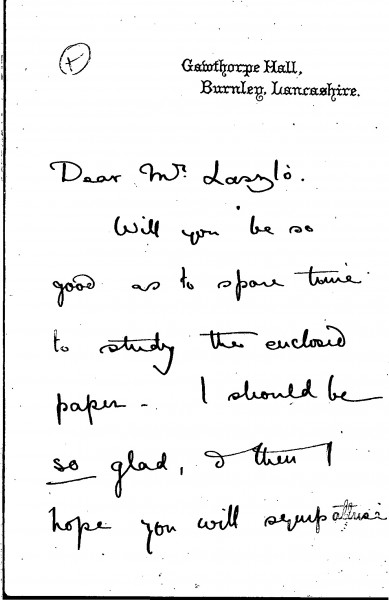 Gawthorpe Hall,
Burnley, Lancashire.
Dear Mr. Laszló.
Will you be so
good as to spare time
to study the enclosed
paper - I should be
so glad, & then I
hope you will sympathise